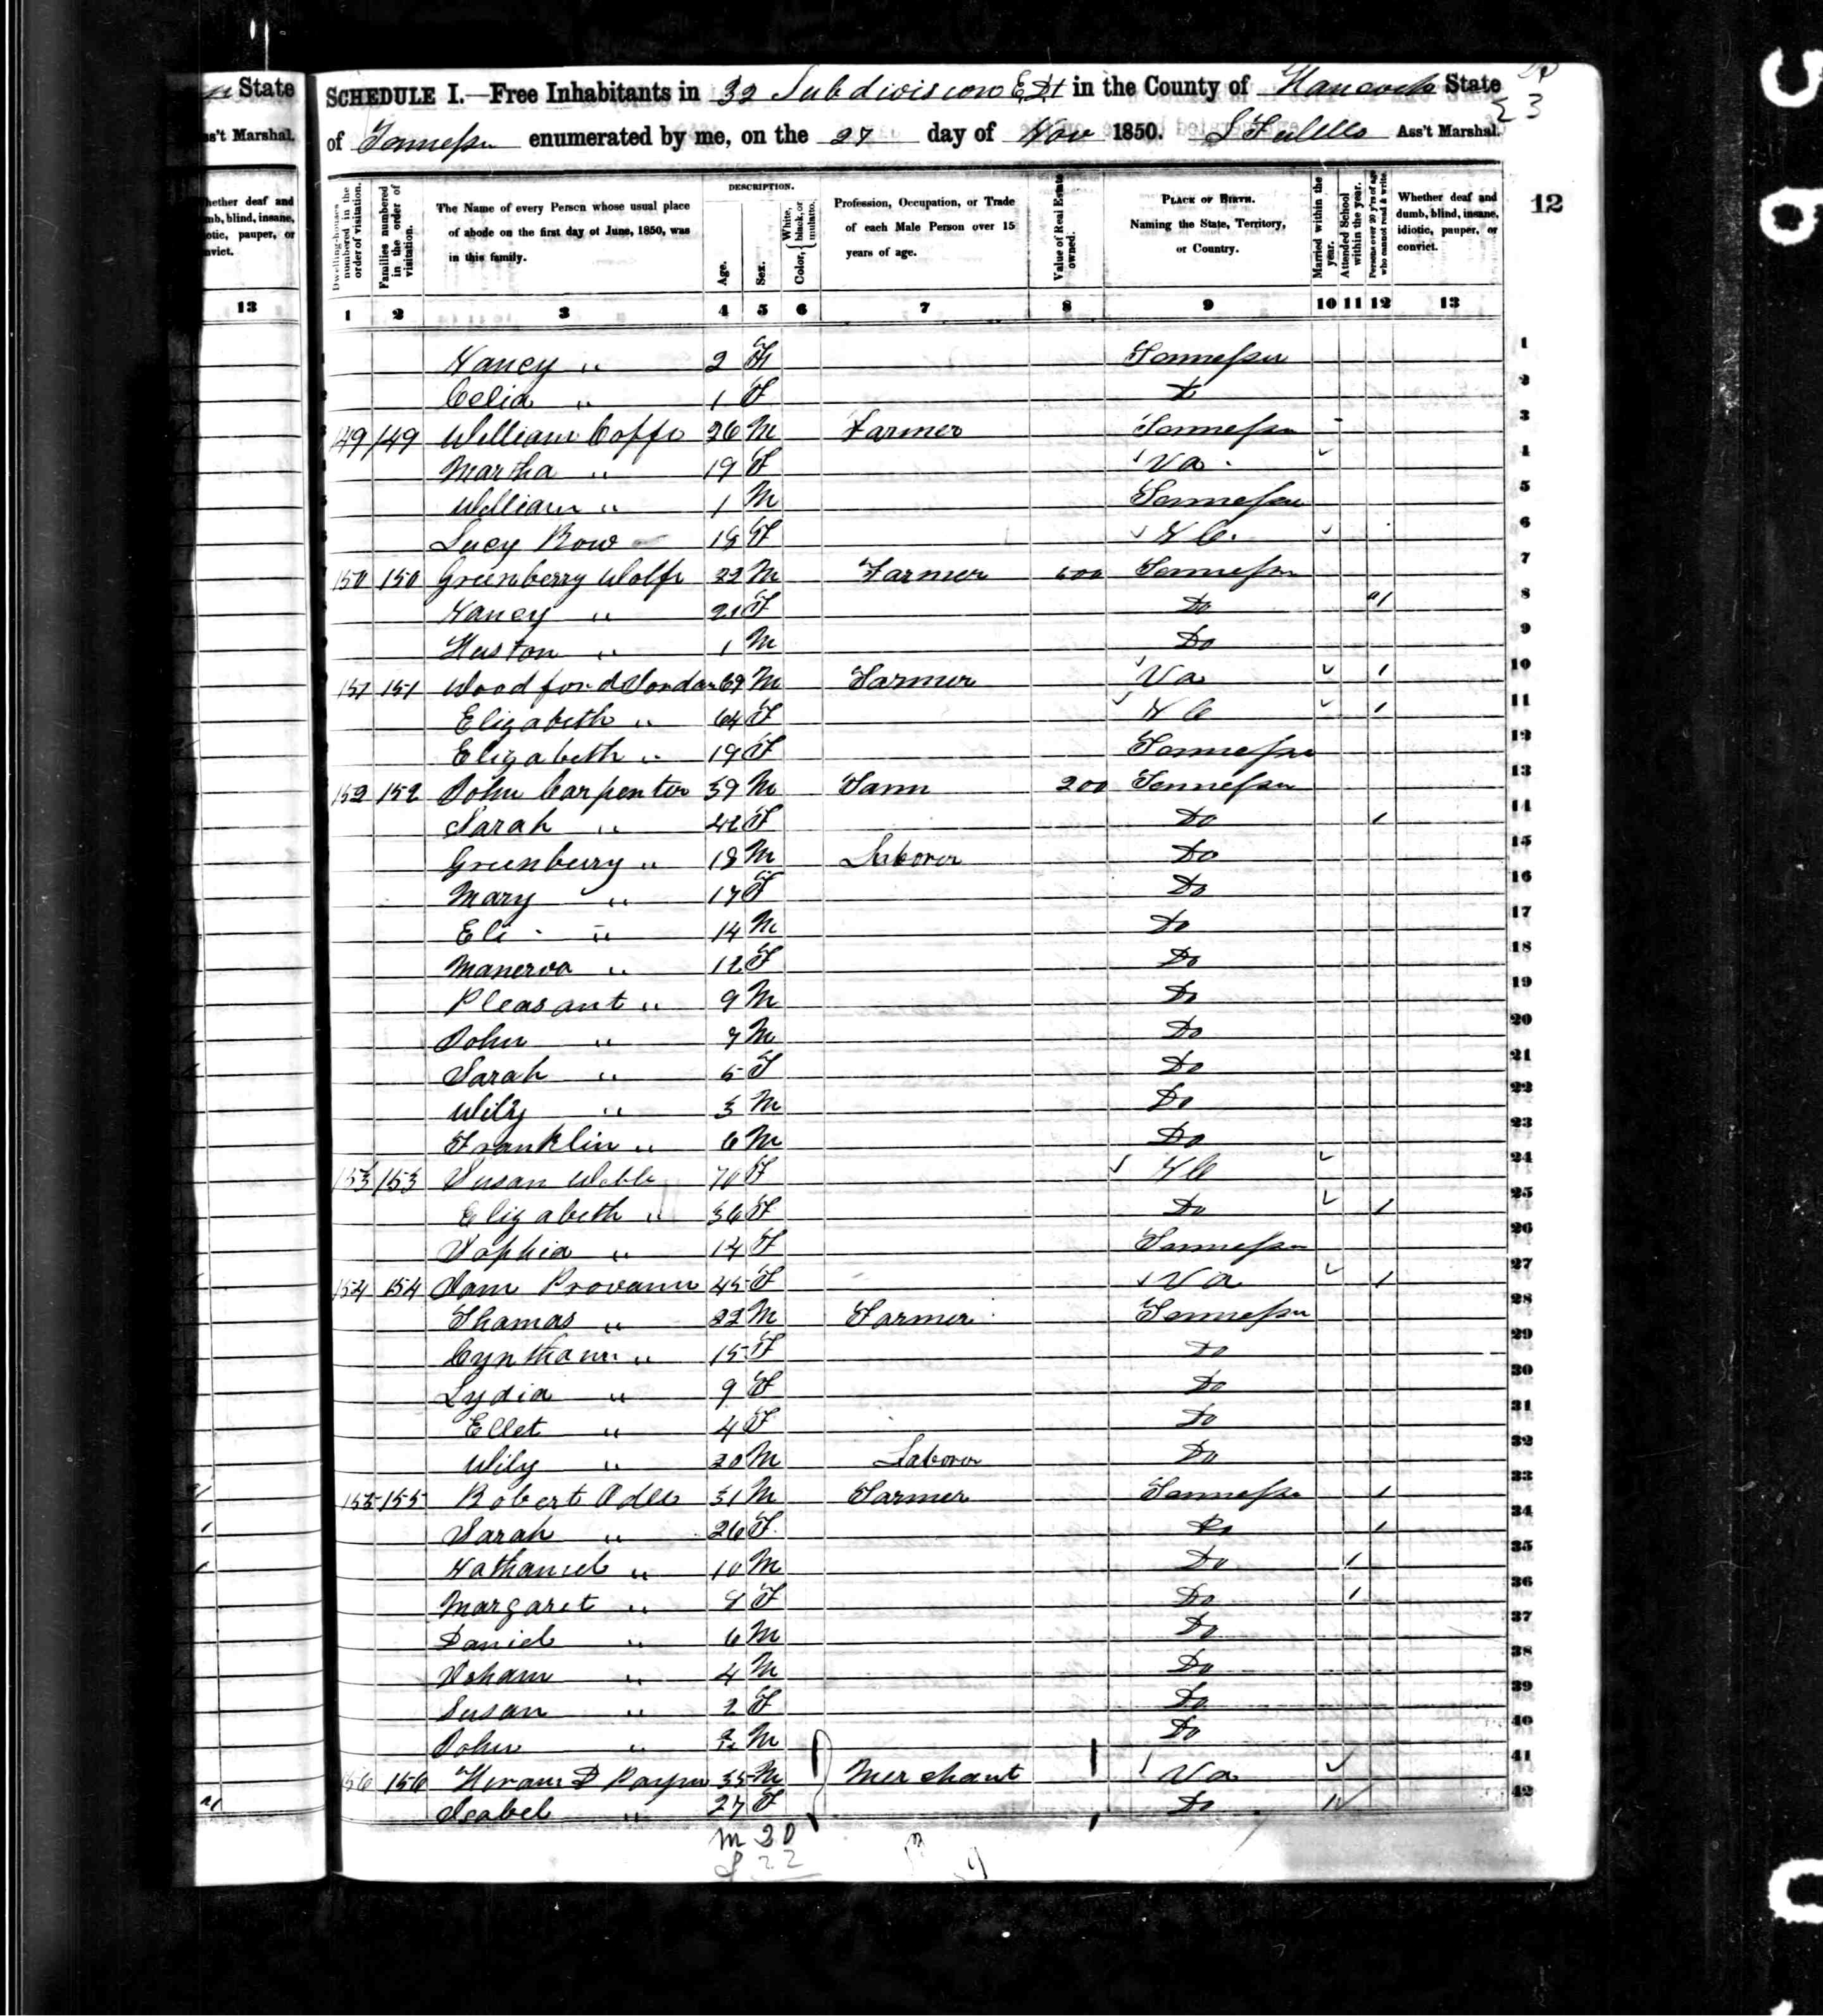 n State
ss't Marshal.
hether deaf and
mb, blind, insane,
otic, pauper, or
nvict.
13
SCHEDULE I.—Free Inhabitants in 32 Subdivision E Dt in the County of Hancock State
of Tennessee enumerated by me, on the 27 day of Nov 1850. Ass't Marshal.
23
12
Dwelling-houses numbered in the order of visitation.
Families numbered in the order of visitation.
The Name of every Person whose usual place of abode on the first day of June, 1850, was in this family.
DESCRIPTION.
Age.
Sex.
Color, { White, black, or mulatto.
Profession, Occupation, or Trade of each Male Person over 15 years of age.
Value of Real Estate owned.
PLACE OF BIRTH. Naming the State, Territory, or Country.
Married within the year.
Attended School within the year.
Persons over 20 y'rs of age who cannot read & write.
Whether deaf and dumb, blind, insane, idiotic, pauper, or convict.
1 2 3 4 5 6 7 8 9 10 11 12 13
Nancy " 2 F Tennessee 1
Celia " 1 F Do 2
149 149 William Coffe 26 M Farmer Tennessee 3
Martha " 19 F Va 4
William " 1 M Tennessee 5
Lucy Row 18 F N C. 6
150 150 Greenberry Wolfe 22 M Farmer 600 Tennessee 7
Nancy " 21 F Do 1 8
Huston " 1 M Do 9
151 151 Woodford 69 M Farmer Va 1 10
Elizabeth " 64 F N C 1 11
Elizabeth " 19 F Tennessee 12
152 152 John Carpenter 39 M Farm 200 Tennessee 13
Sarah " 42 F Do 1 14
Greenberry " 18 M Laborer Do 15
Mary " 17 F Do 16
Eli " 14 M Do 17
Manerva " 12 F Do 18
Pleasant " 9 M Do 19
John " 7 M Do 20
Sarah " 5 F Do 21
Wily " 3 M Do 22
Franklin " 6 M Do 23
153 153 Susan Webb 70 F N C 24
Elizabeth " 36 F Do 1 25
Sophia " 14 F Tennessee 26
154 154 Jane 45 F Va 1 27
Thomas " 22 M Farmer Tennessee 28
Cynthann " 15 F Do 29
Lydia " 9 F Do 30
Ellet " 4 F Do 31
Wily " 20 M Laborer Do 32
155 155 Robert 31 M Farmer Tennessee 1 33
Sarah " 26 F Do 1 34
Nathaniel " 10 M Do 1 35
Margaret " 8 F Do 1 36
Daniel " 6 M Do 37
Isham " 4 M Do 38
Susan " 2 F Do 39
John " M Do 40
156 156 Hiram D Payne 35 M Merchant Va 41
Isabel " 27 F Do 42
M 20
F 22